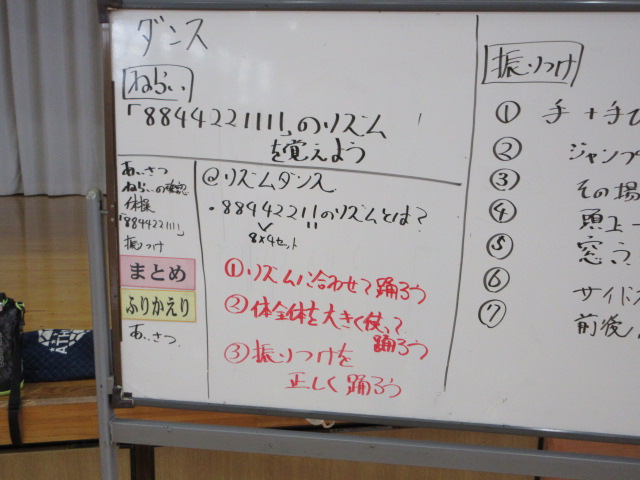 ダンス
ねらい
「8844221111」のリズム
を覚えよう
あいさつ
ねらいの確認
体操
「884422111」
振りつけ
まとめ
ふりかえり
あいさつ
@リズムダンス
・88442211のリズムとは?
8×4セット
①リズムに合わせて踊ろう
②体全体を大きく使って
踊ろう
③振りつけを
正しく踊ろう
振りつけ
① 手+手ひ
② ジャンプ
③ その場
④ 頭上
⑤ 窓
⑥ サイド
⑦ 前後